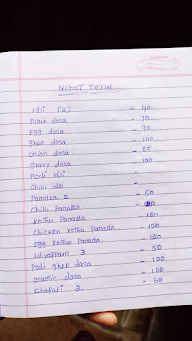 NIGHT TIFFIN
Idli [2] - 40
Plain dosa - 70
Egg dosa - 90
Ghee dosa - 100
Onion dosa - 85
Gravy dosa - 100
Podi Idli
Chilli Idli -
Parotta 2 - 50
Chilli Parotta -
Kothu Parotta - 120
Chicken Kothu Parotta - 150
Egg Kothu Parotta - 130
Idiyappam 3 - 50
Podi ghee dosa - 100
Garlic dosa - 100
Chapati 2 - 60